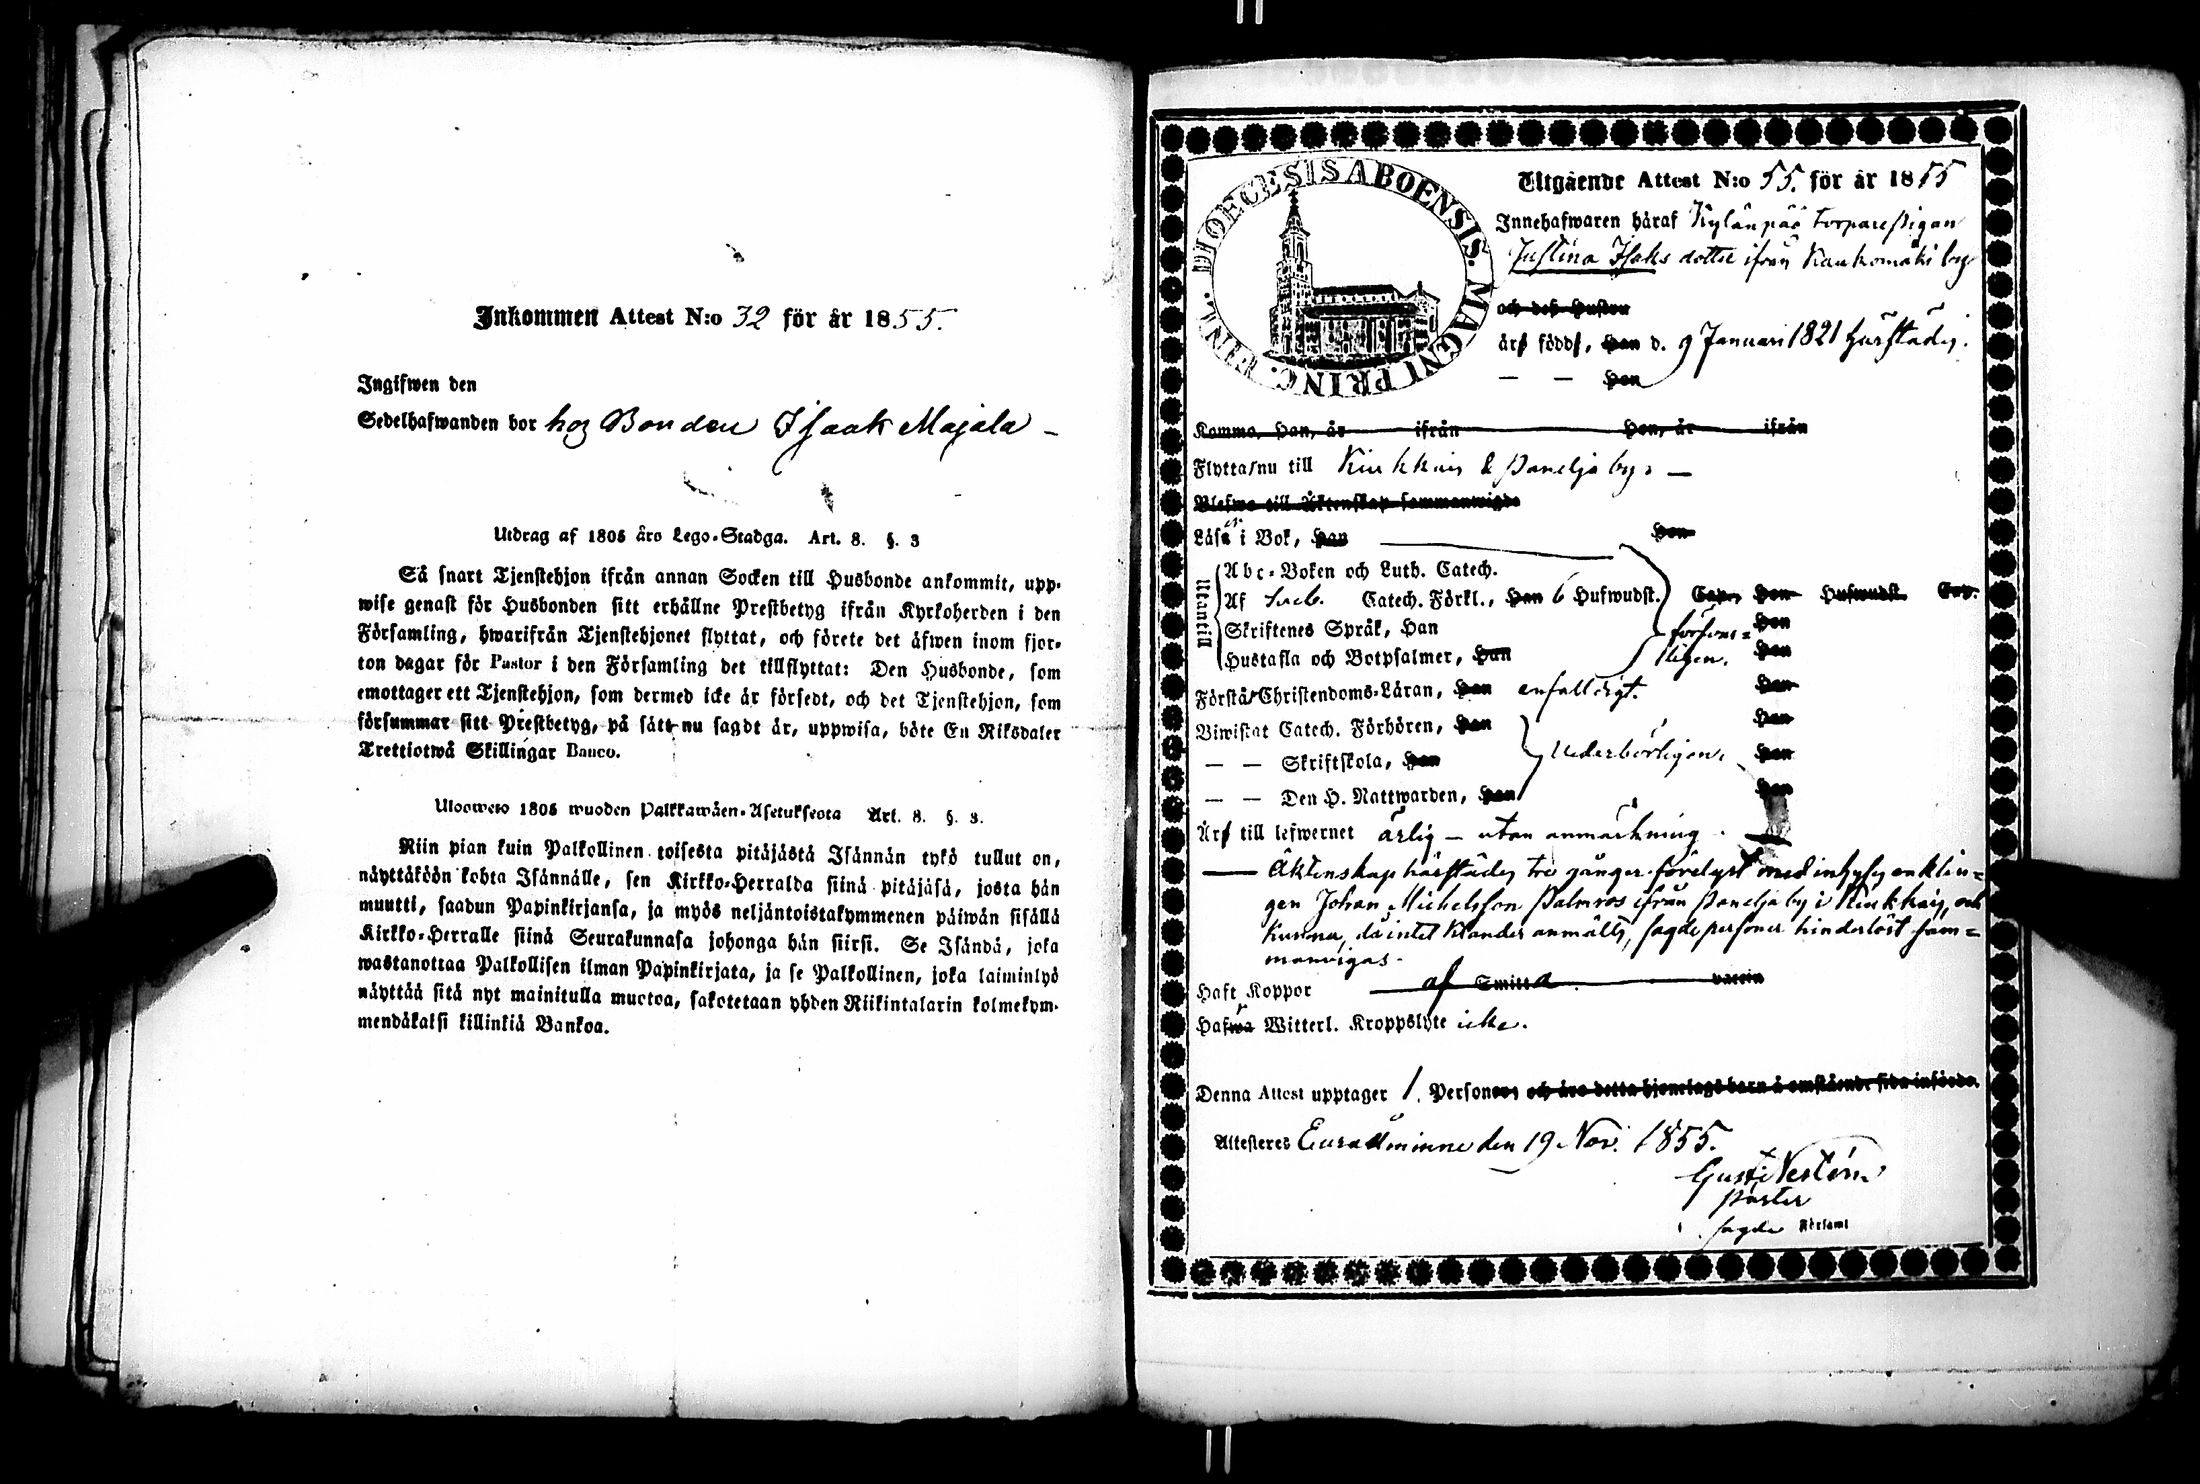 Inkommen Attest N:o 32 för år 1855.
Ingifwen den
Sedelhafwanden bor hos Bonden Isaak Majala –
Utdrag af 1805 års Lego-Stadga. Art. 8. §. 3
Så snart Tjenstehjon ifrån annan Socken till Husbonde ankommit, upp-
wise genast för Husbonden sitt erhållne Prestbetyg ifrån Kyrkoherden i den
Församling, hwarifrån Tjenstehjonet flyttat, och förete det äfwen inom fjor-
ton dagar för Pastor i den Församling det tillflyttat: Den Husbonde, som
emottager ett Tjenstehjon, som dermed icke är försedt, och det Tjenstehjon, som
försummar sitt Prestbetyg, på sätt nu sagdt är, uppwisa, böte En Riksdaler
Trettiotwå Skillingar Banco.
Uloswero 1805 wuoden Palkkawäen-Asetuksesta Art. 8. §. 3.
Niin pian kuin Palkollinen toisesta pitäjästä Isännän tykö tullut on,
näyttäköön kohta Isännälle, sen Kirkko-Herralda siinä pitäjäsä, josta hän
muutti, saadun Papinkirjansa, ja myös neljäntoistakymmenen päiwän sisällä
Kirkko-Herralle siinä Seurakunnasa johonga hän siirsi. Se Isändä, joka
wastanottaa Palkollisen ilman Papinkirjata, ja se Palkollinen, joka laiminlyö
näyttää sitä nyt mainitulla muotoa, sakotetaan yhden Riikintalarin kolmekym-
mendäkaksi killinkiä Bankoa.
DIOECESIS ABOENSIS. MAGNI PRINC. FINL.
Utgående Attest N:o 55. för år 1855
Innehafwaren häraf Kylänpää torparepigan
Justina Isaks dotter ifrån Kaukomäki by
och dess Hustru
äro född, Han d. 9 Januari 1821 härstädes.
– – Hon
Komma, Han, år ifrån Hon, år ifrån
Flytta nu till Kiukkais & Panelja by. –
Blefwo till Äktenskap sammanwigde
Läser i Bok, Han Hon
Utantill
Abc-Boken och Luth. Catech.
Af Sveb. Catech. Förkl., Han 6 Hufwudst. Cap., Hon Hufwudst. Cap.
Skriftenes Språk, Han försvar- Hon
Hustafla och Botpsalmer, Han ligen. Hon
Förstå Christendoms-Läran, Han enfalldigt. Hon
Biwistat Catech. Förhören, Han Hon
– – Skriftskola, Han Vederbörligen. Hon
– – Den H. Nattwarden, Han Hon
Äro till lefwernet ärlig – utan anmärkning. –
– Äktenskap härstädes tre gånger förelyst med inhyses enklin-
gen Johan Michelsson Palmros ifrån Panelja by i Kiukkais, och
kunna, då intet klander anmälts, sagde personer hinderlöst sam-
manvigas.
Haft Koppor af Smitta vaccin
Hafwa Witterl. Kroppslyte icke.
Denna Attest upptager 1. Personer och äro detta hjonelags barn å omstående sida införda.
Attesteres Euraåminne den 19 Nov. 1855.
Pastor
sagde Församl